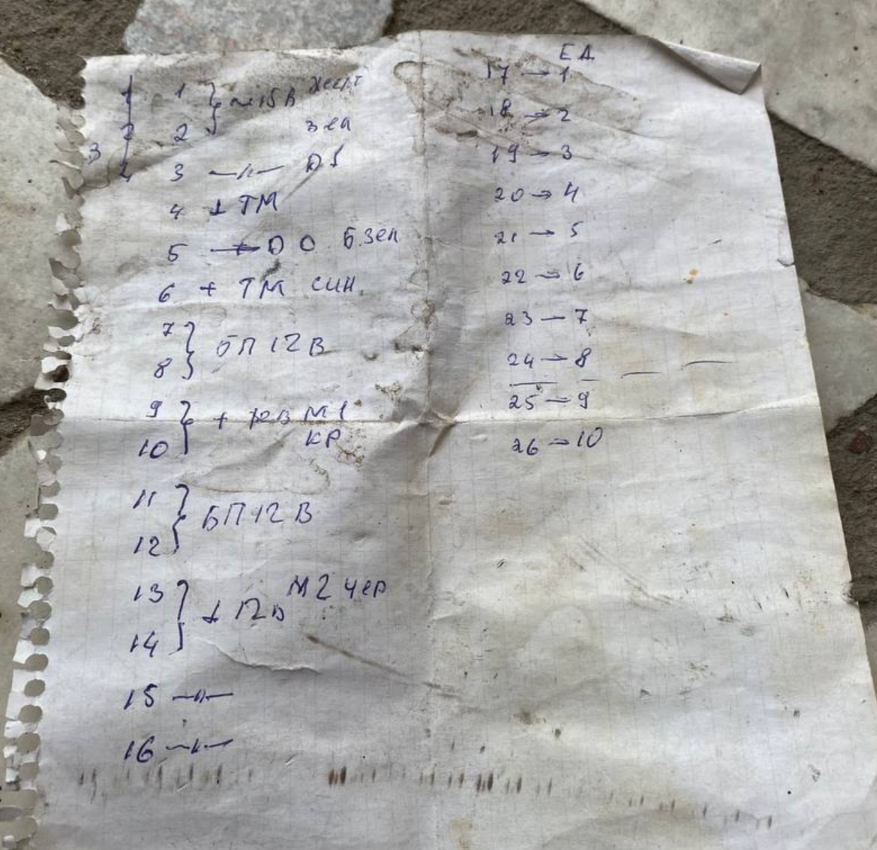 1 1 } ~15В желт
2 2 зел
3
4 3 —〃— D1
4 ⊥ ТМ
5 D0 Б.зел
6 + ТМ син.
7 } БП 12В
8
9 } + 12В М1
10 КР
11 } БП 12В
12
13 } + 12В М2 чер
14
15 —〃—
16 —〃—
ЕД
17 → 1
18 → 2
19 → 3
20 → 4
21 → 5
22 — 6
23 — 7
24 — 8
25 — 9
26 — 10